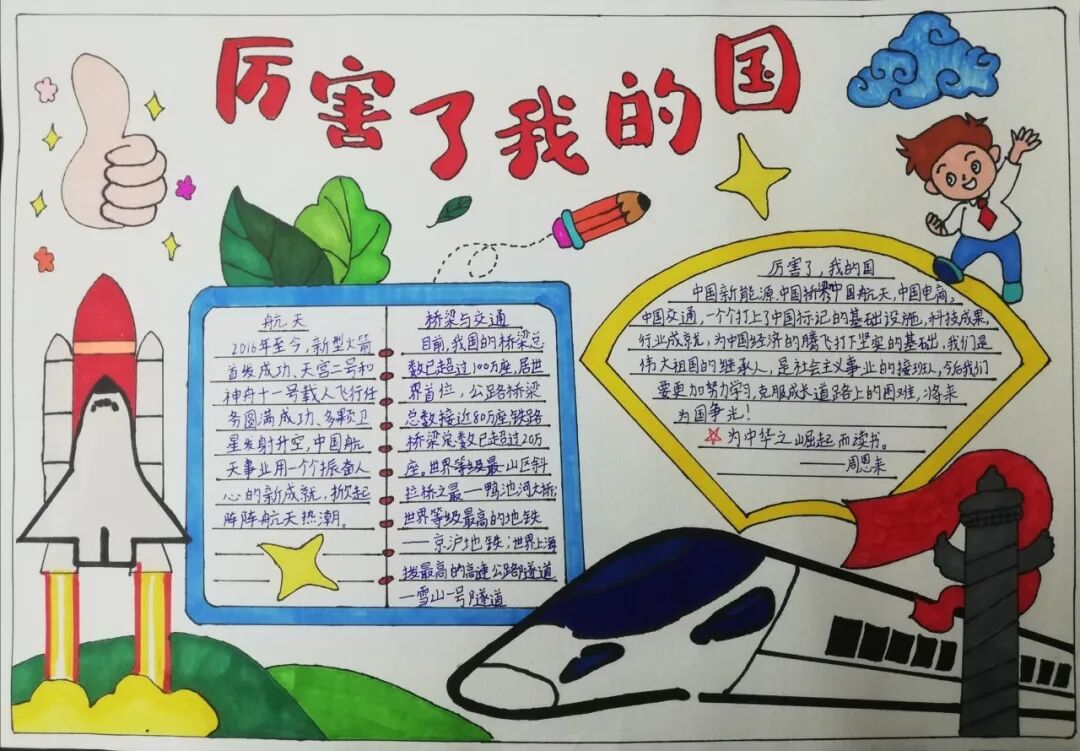 厉害了我的国
航天
2016年至今,新型火箭
首发成功、天宫二号和
神舟十一号载人飞行任
务圆满成功、多颗卫
星发射升空,中国航
天事业用一个个振奋人
心的新成就,掀起
阵阵航天热潮。
桥梁与交通
目前,我国的桥梁总
数已超过100万座,居世
界首位,公路桥梁
总数接近80万座铁路
桥梁总数已超过20万
座。世界等级最一山区斜
拉桥之最一鸭池河大桥;
世界等级最高的地铁
——京沪地铁;世界上海
拨最高的高速公路隧道
—雪山一号隧道
厉害了,我的国
中国新能源,中国桥梁,中国航天,中国电商,
中国交通,一个个打上了中国标记的基础设施,科技成果,
行业成就,为中国经济的腾飞打下坚实的基础,我们是
伟大祖国的继承人,是社会主义事业的接班人,今后我们
要更加努力学习,克服成长道路上的困难,将来
为国争光!
☆为中华之崛起而读书。
——周恩来